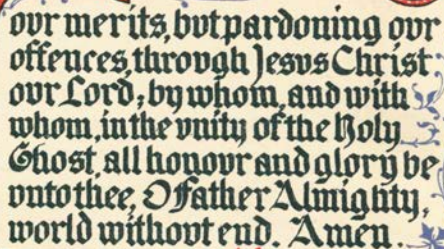 ovr merits, bvt pardoning ovr
offences, throvgh Jesvs Christ
ovr Lord; by whom, and with
whom, in the vnity of the Holy
Ghost, all honovr and glory be
vnto thee, O Father Almighty,
world withovt end. Amen